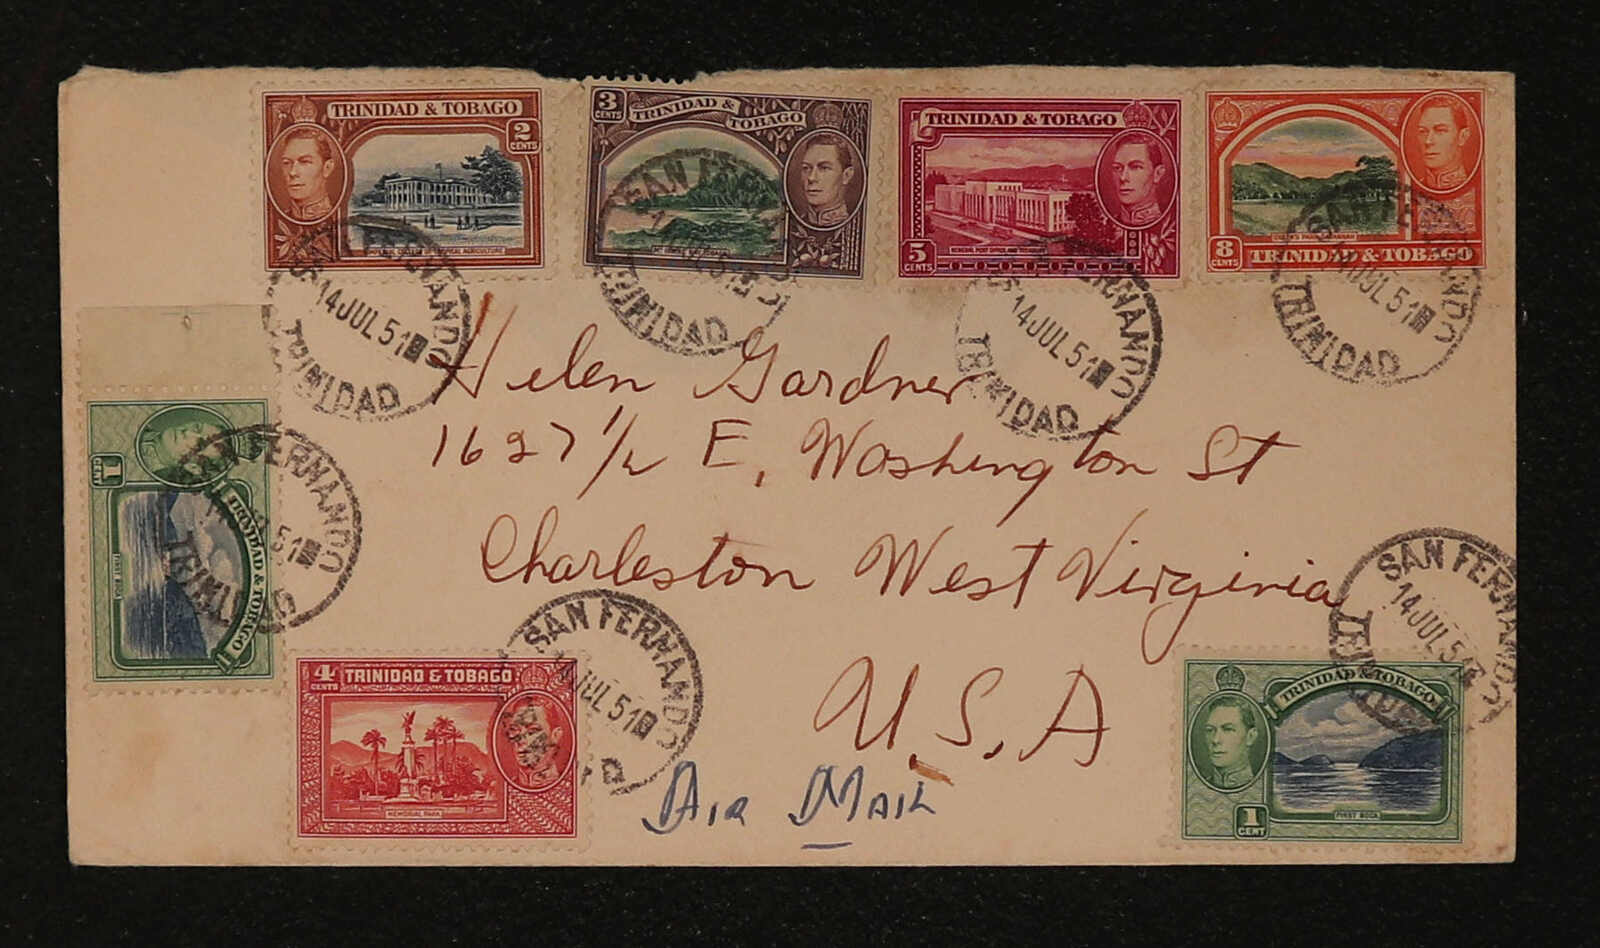 TRINIDAD & TOBAGO
2 CENTS
IMPERIAL COLLEGE OF TROPICAL AGRICULTURE
3 CENTS
TRINIDAD & TOBAGO
TRINIDAD & TOBAGO
5 CENTS
8 CENTS
TRINIDAD & TOBAGO
SAN FERNANDO
14 JUL 51
TRINIDAD
SAN FERNANDO
14 JUL 51
TRINIDAD
SAN FERNANDO
14 JUL 51
TRINIDAD
SAN FERNANDO
14 JUL 51
TRINIDAD
Helen Gardner
1627 1/2 E. Washington St
Charleston West Virginia
U.S.A
Air Mail
1 CENT
TRINIDAD & TOBAGO
FIRST BOCA
SAN FERNANDO
51
TRINIDAD
4 CENTS
TRINIDAD & TOBAGO
MEMORIAL PARK
SAN FERNANDO
14 JUL 51
SAN FERNANDO
14 JUL 51
TRINIDAD & TOBAGO
1 CENT
FIRST BOCA